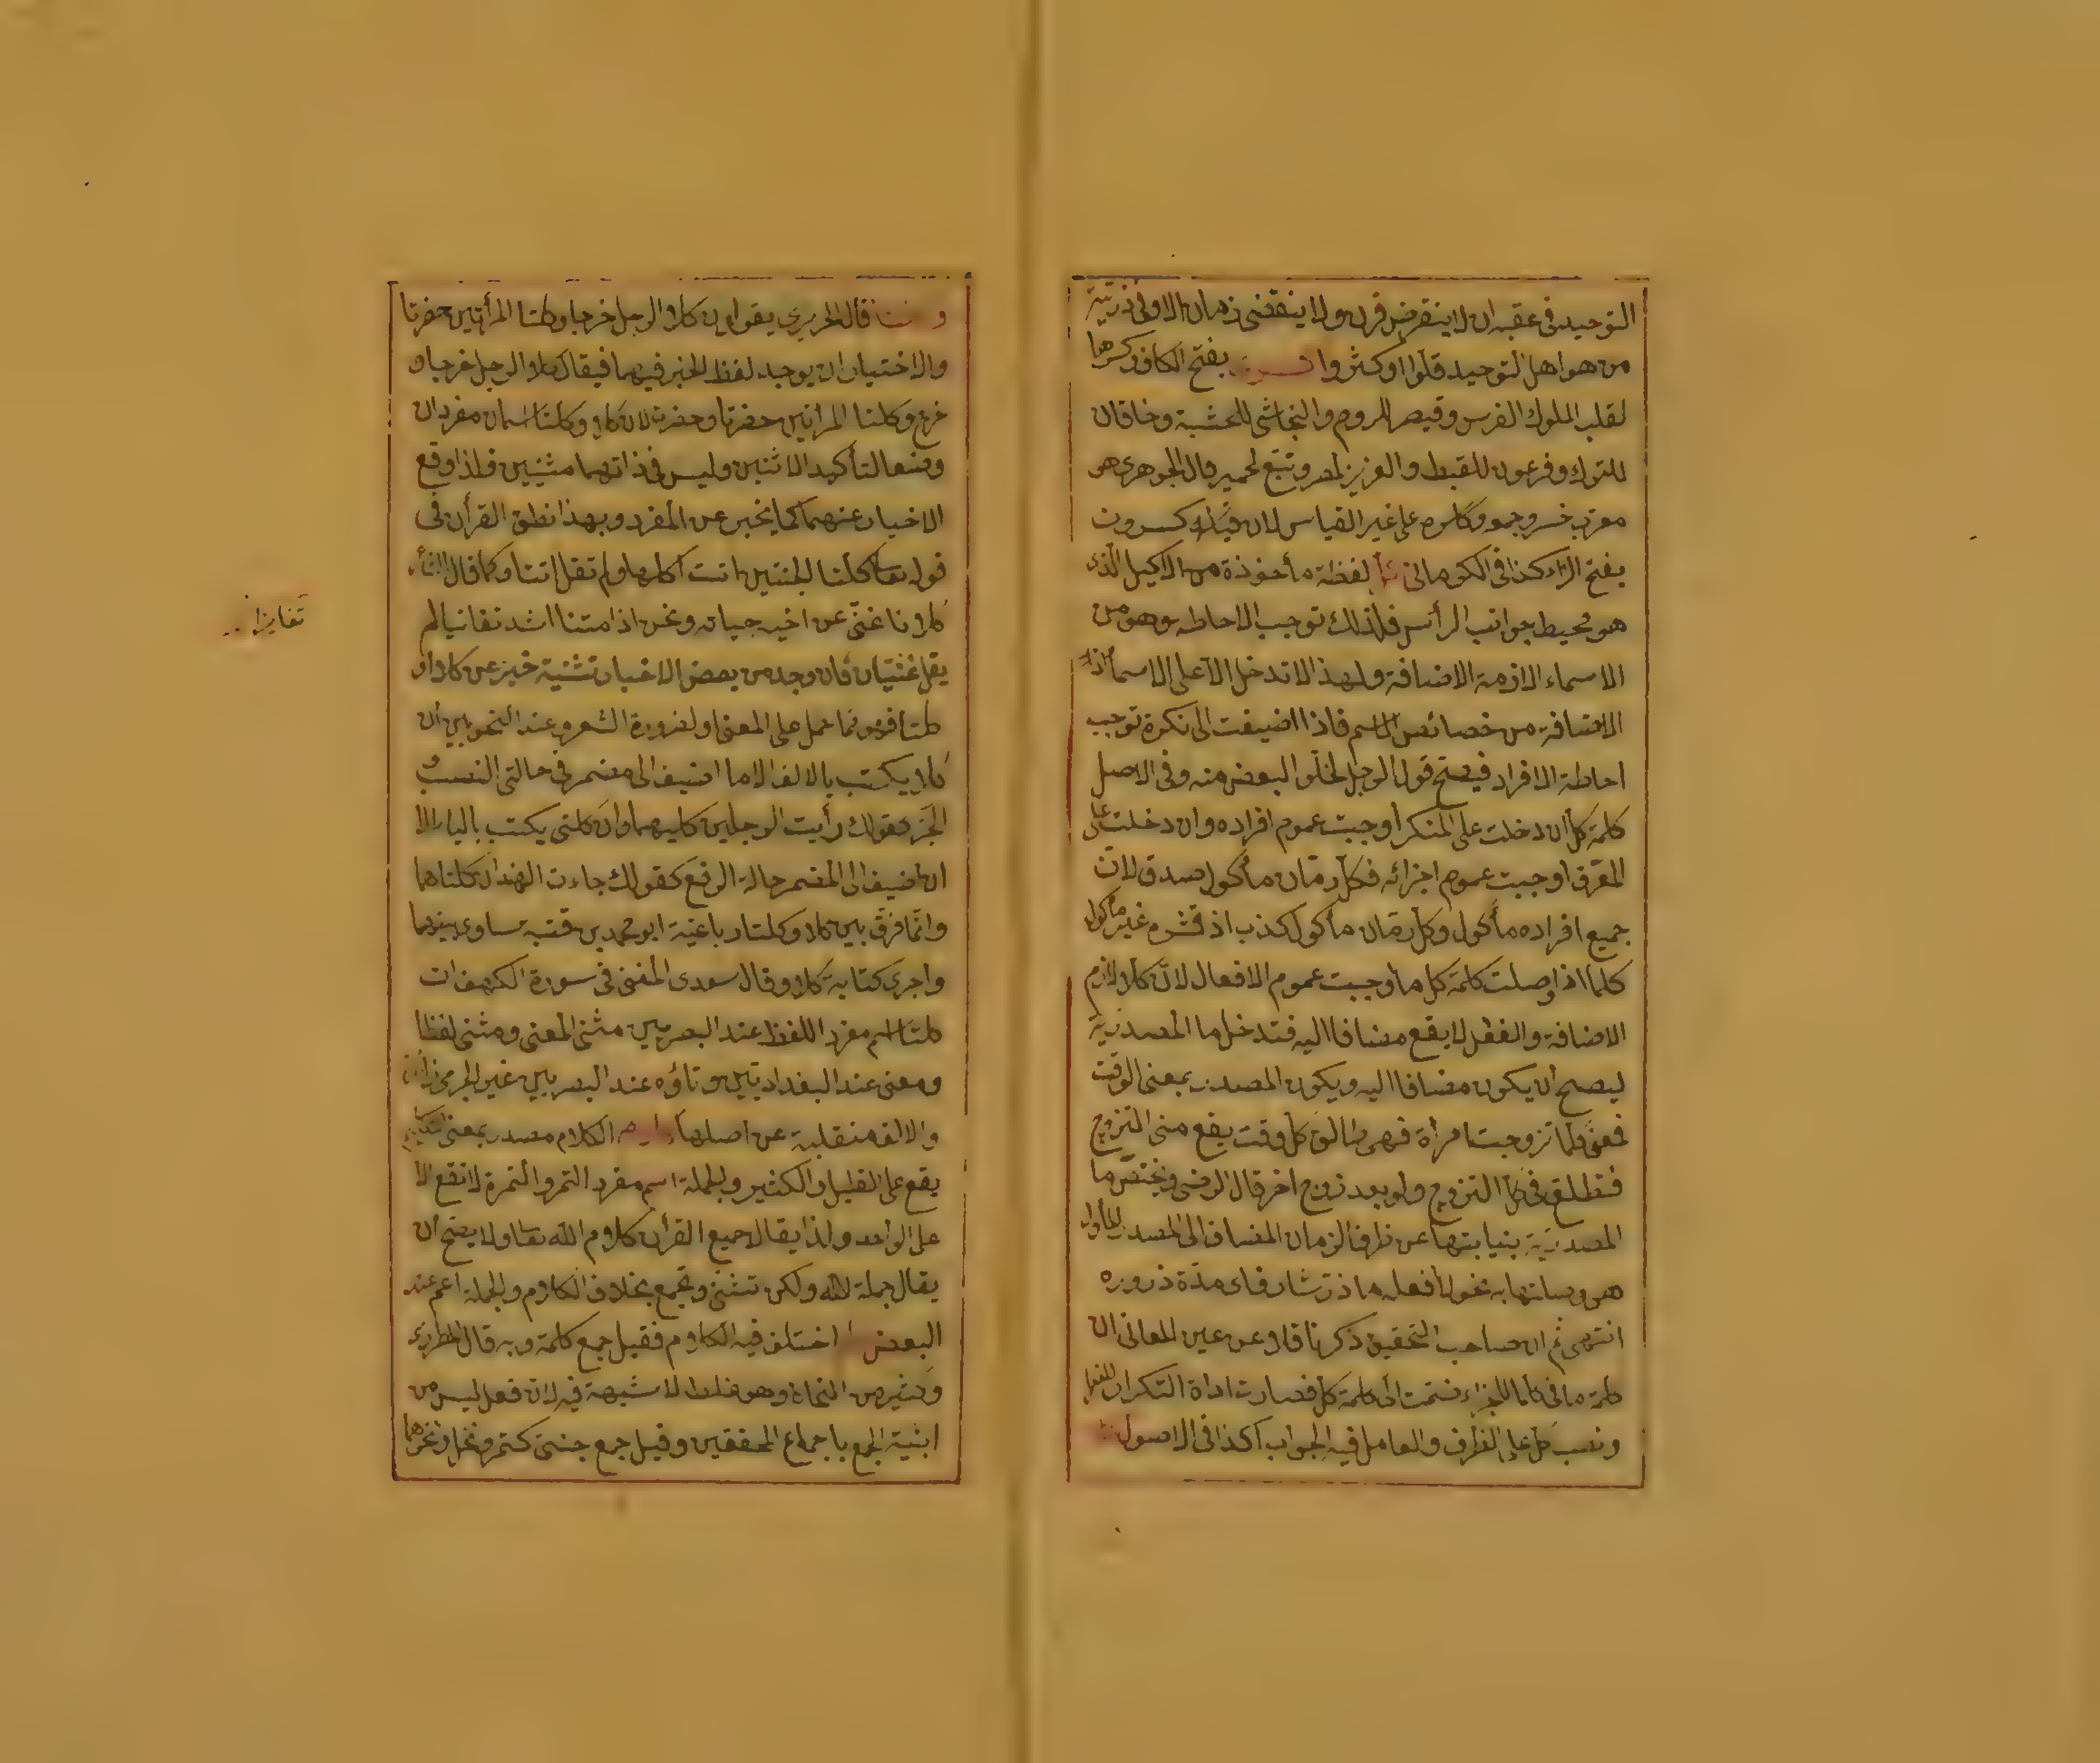 التوحيد فى عقبه ان لا ينقرض قرن ولا ينقضى زمان الا وفى ذريته
من هو اهل التوحيد قلوا او كثروا بفتح الكاف وكسرها
لقلب الملوك الفرس وقيصر للروم والنجاشى للحشبة وخاقان
للترك وفرعون للقبط والعزيز لمصر وتبع لحمير قال الجوهرى هو
معرب خسرو جمعه اكاسره على غير القياس لان قياسه كسرون
بفتح الراء كذا فى الكرمانى لفظة مأخوذة من الاكيل الذى
هو محيط جوانب الرأس فلذلك توجب الاحاطه وهو من
الاسماء اللازمة الاضافة ولهذا لا تدخل الا على الاسماء اذ
الاضافة من خصائص الاسم فاذا اضيفت الى نكرة توجب
احاطة الافراد فيصح قول الرجل لخلو البعض منه وفى الاصل
كلمة كل ان دخلت على المنكر اوجبت عموم افراده وان دخلت على
المعرف اوجبت عموم اجزائه فكل رمان مأكول صدق لان
جميع افراده مأكول وكل رمان مأكول كذب اذ قشره غير مأكول
كلما اذا وصلت كلمة كل بما اوجبت عموم الافعال لان كلا لازم
الاضافة والفعل لا يقع مضافا اليه فتدخل ما المصدرية
ليصح ان يكون مضافا اليه ويكون المصدر بمعنى الوقت
فمعنى كلما تزوجت امرأة فهى طالق كل وقت يقع منى التزوج
فتطلق فى كل التزوج ولو بعد زوج اخر قال الرضى وتختص ما
المصدرية بنيابتها عن ظرف الزمان المضاف الى المصدر المأول
هى وصلتها به نحو لا افعله ما ذر شارق اى مدة ذروره
انتهى ثم ان صاحب التحقيق ذكر ناقلا عن عين المعانى ان
كلمة ما فى كلما للجزاء ضمت الى كلمة كل فصارت اداة التكرار للفعل
ونصب كل على الظرف والعامل فيه الجواب كذا فى الاصول
قال الحريرى يقولون كلا الرجلين خرجا وكلتا المرأتين حضرتا
والاختيار ان يوحد لفظ الخبر فيهما فيقال كلا الرجل خرجا و
خرج وكلتا المرأتين حضرتا وحضرت لان كلا وكلتا اسمان مفردان
وضعا لتأكيد الاثنين وليس فى ذاتهما مثنيين فلذا وقع
الاخبار عنهما كما يخبر عن المفرد وبهذا نطق القرأن فى
قوله تعالى كلتا الجنتين اتت اكلها ولم تقل اتتا وكما قال الشاعر
كلانا غنى عن اخيه حياته ونحن اذا متنا اشد تغانيا لم
يقل غنيان فان وجد من بعض الاخبار تثنية خبر عن كلا او
كلتا فهو مما حمل على المعنى او لضرورة الشعر وعند النحويين ان
كلا يكتب بالالف الا ما اضيف الى مضمر فى حالتى النصب و
الجر كقولك رأيت الرجلين كليهما وان كلتى يكتب بالياء الا
ان اضيف الى المضمر حالة الرفع كقولك جاءت الهندان كلتاهما
وانما فرق بين كلا وكلتا رباعية ابو محمد بن قتبة ساوى بينهما
واجرى كتابة كلا وقال سعدى المفتى فى سورة الكهف ان
كلتا اسم مفرد اللفظ عند البصريين مثنى المعنى ومثنى لفظا
ومعنى عند البغداديين وتاؤه عند البصريين غير الجرمى
والالف منقلبة عن اصلها الكلام مصدر بمعنى
يقع على القليل والكثير والجملة اسم مفرد التمر والتمرة لا تقع الا
على الواحد ولذا يقال جميع القرأن كلام الله تعالى ولا يصح ان
يقال جملة الله ولكن تثنى وتجمع بخلاف الكلام والجملة اعم عند
البعض اختلف فيه الكلام فقيل جمع كلمة وبه قال المطرزى
وكثير من النحاة وهو غلط لا شبهة فيه لان فعل ليس من
ابنية الجمع باجماع المحققين وقيل جمع جنس كتمر ونخل ونحوهما
تغانيا